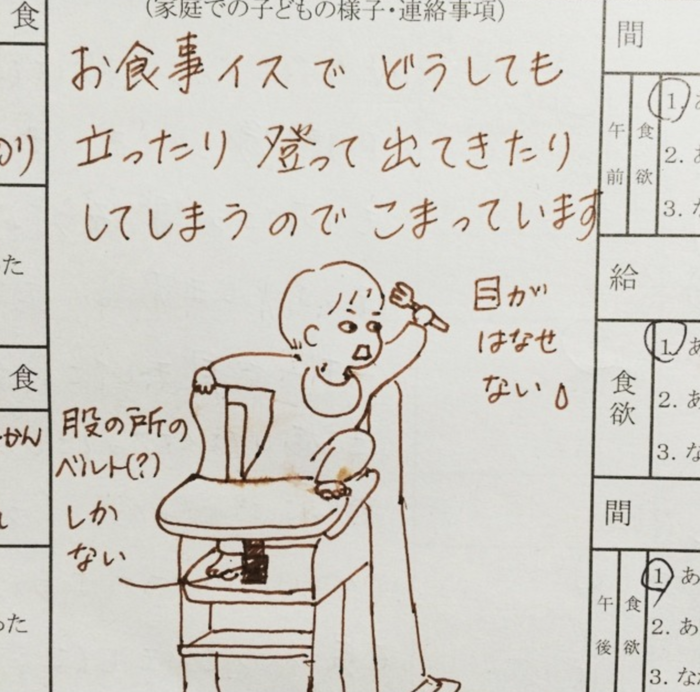 食
のり
た
食
かん
った
(家庭での子どもの様子・連絡事項)
お食事イスで どうしても
立ったり 登って 出てきたり
してしまうので こまっています
目が
はなせ
ない
股の所の
ベルト(?)
しか
ない
間
午前
食欲
1. あ
2. あ
3. な
給
食欲
1. あ
2. あ
3. な
間
午後
食欲
1 あ
2. あ
3. な